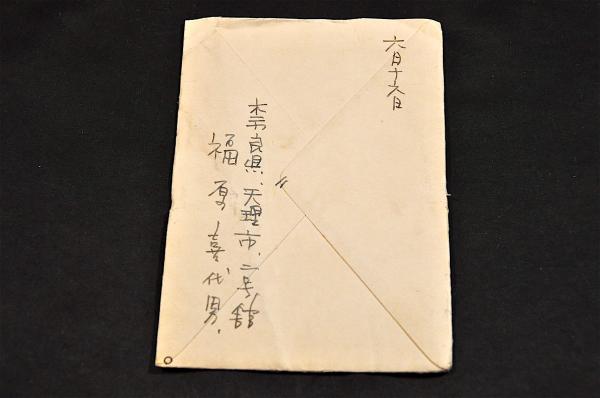 六月十六日
奈良県、天理市、二号館
福原喜代男、